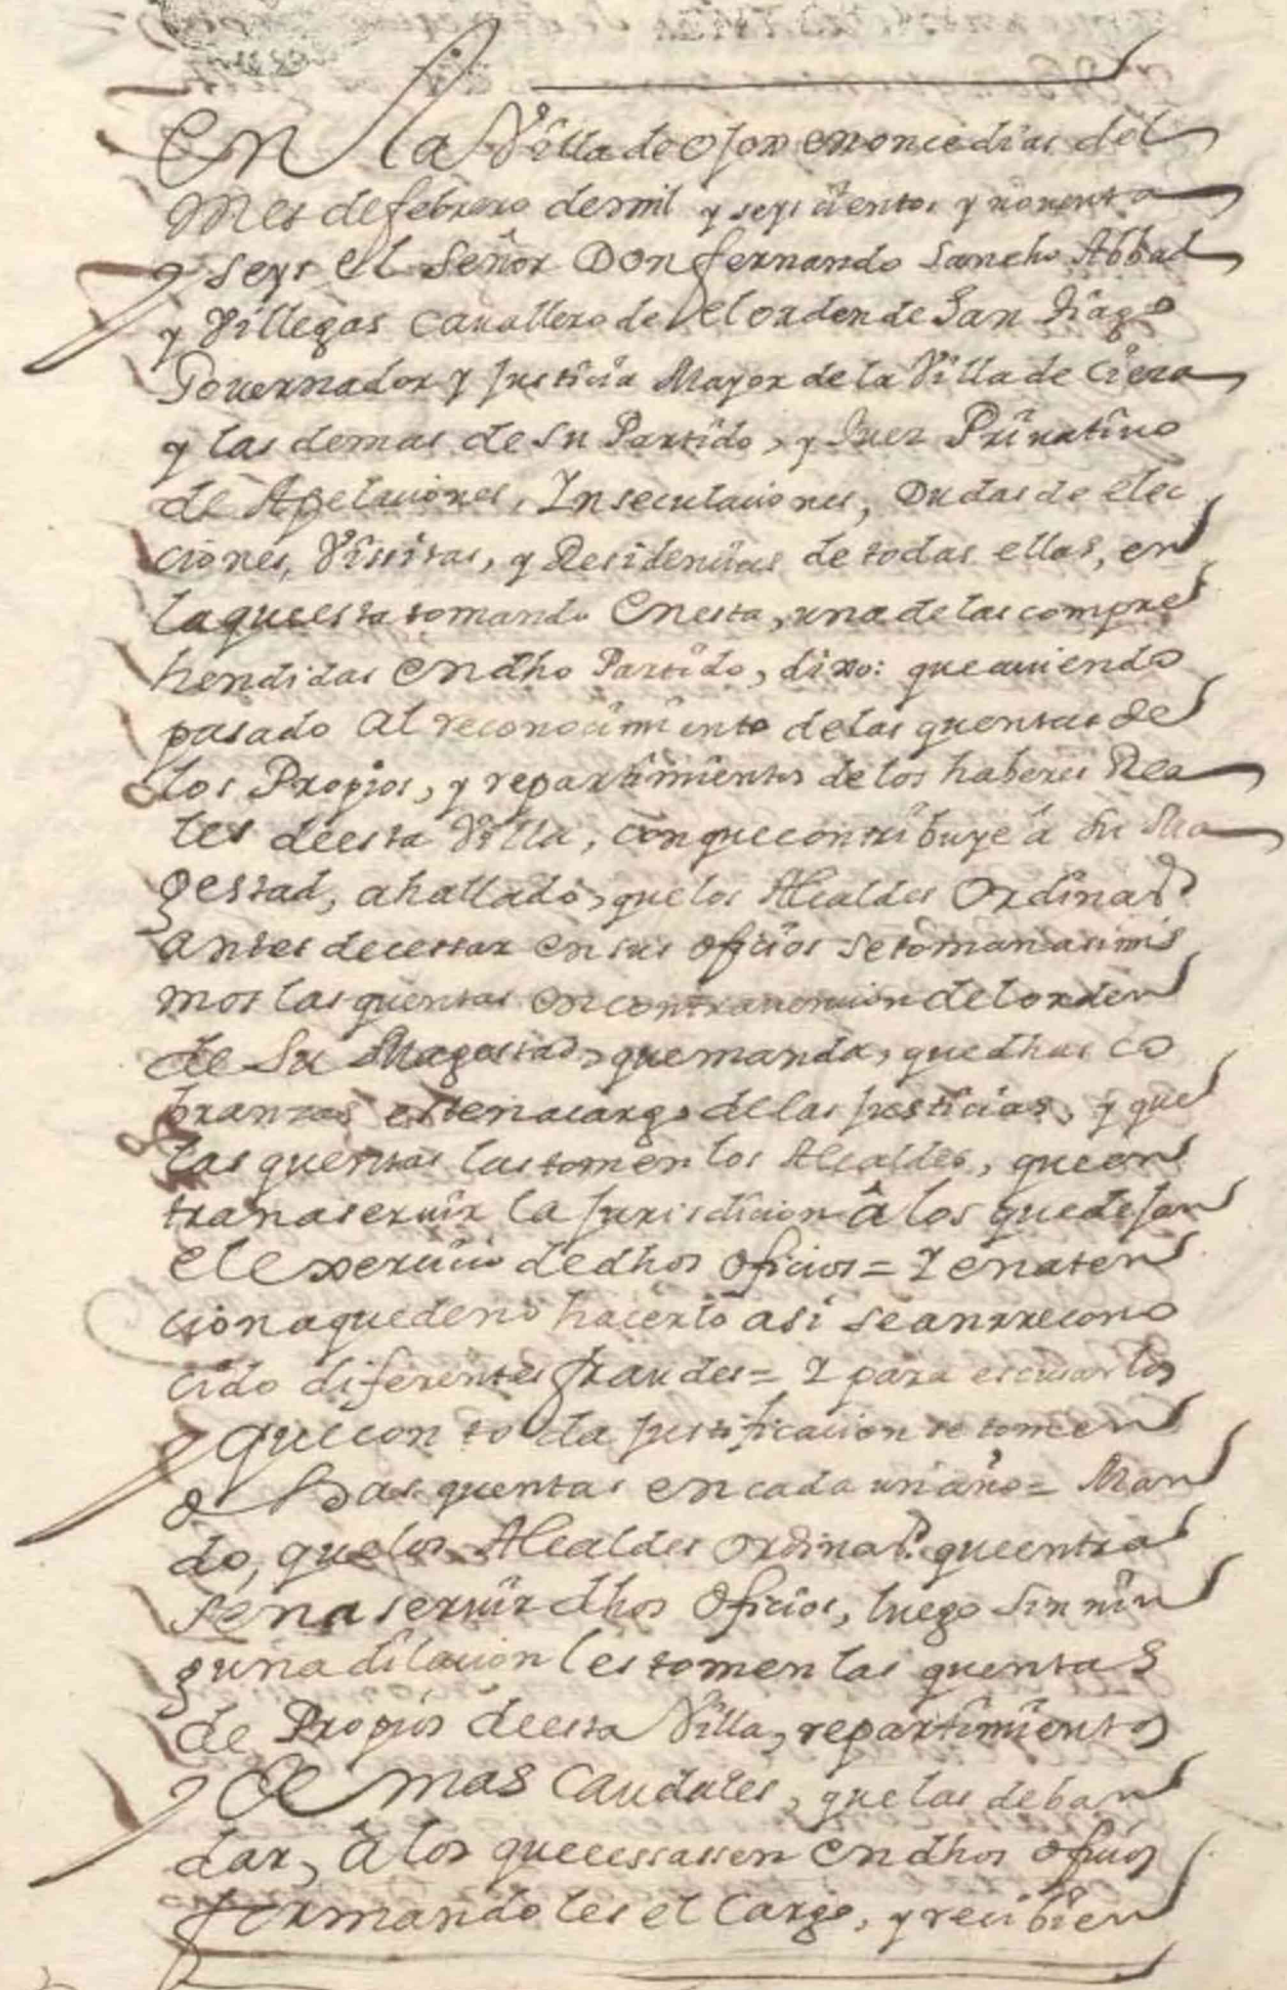 En la Villa de ojos en once dias del
Mes de febrero de mil y seys cientos y nouenta
y seys el Señor Don fernando Sancho Abbad
y Villegas Cauallero de el orden de San Tiago
Gouernador y Justicia Mayor de la Villa de Cieza
y las demas de su Partido, y Juez Priuatiuo
de Apelaciones, Inseculaciones, Dudas de elec
ciones, Vissitas, y Residencias de todas ellas, en
la que esta tomando en esta, una de las compre
hendidas en dho Partido, dixo: que auiendo
pasado al reconocimiento de las quentas de
los Propios, y repartimientos de los haberes Rea
les de esta Villa, con que contribuye á Su Ma
gestad, a hallado, que los Alcaldes Ordinars
antes de cessar en sus oficios se toman asimis
mos las quentas en contrauencion del orden
de Su Magestad, que manda, que dhas co
branzas esten a cargo de las justicias, y que
las quentas las tomen los Alcaldes, que en
tran a seruir la Jurisdicion â los que dejan
el exercicio de dhos oficios = Y en aten
cion a que de no hacerlo asi se an rrecono
cido diferentes fraudes = Y para escusarlos
y que con toda justificacion se tomen
dhas quentas en cada un año = Man
do, que los Alcaldes ordinars que entra
ren a seruir dhos Oficios, luego sin nin
guna dilacion les tomen las quentas
de Propios de esta Villa, repartimientos
y demas Caudales, que las deban
dar, â los que cessassen en dhos oficios
formandoles el Cargo, y recibien